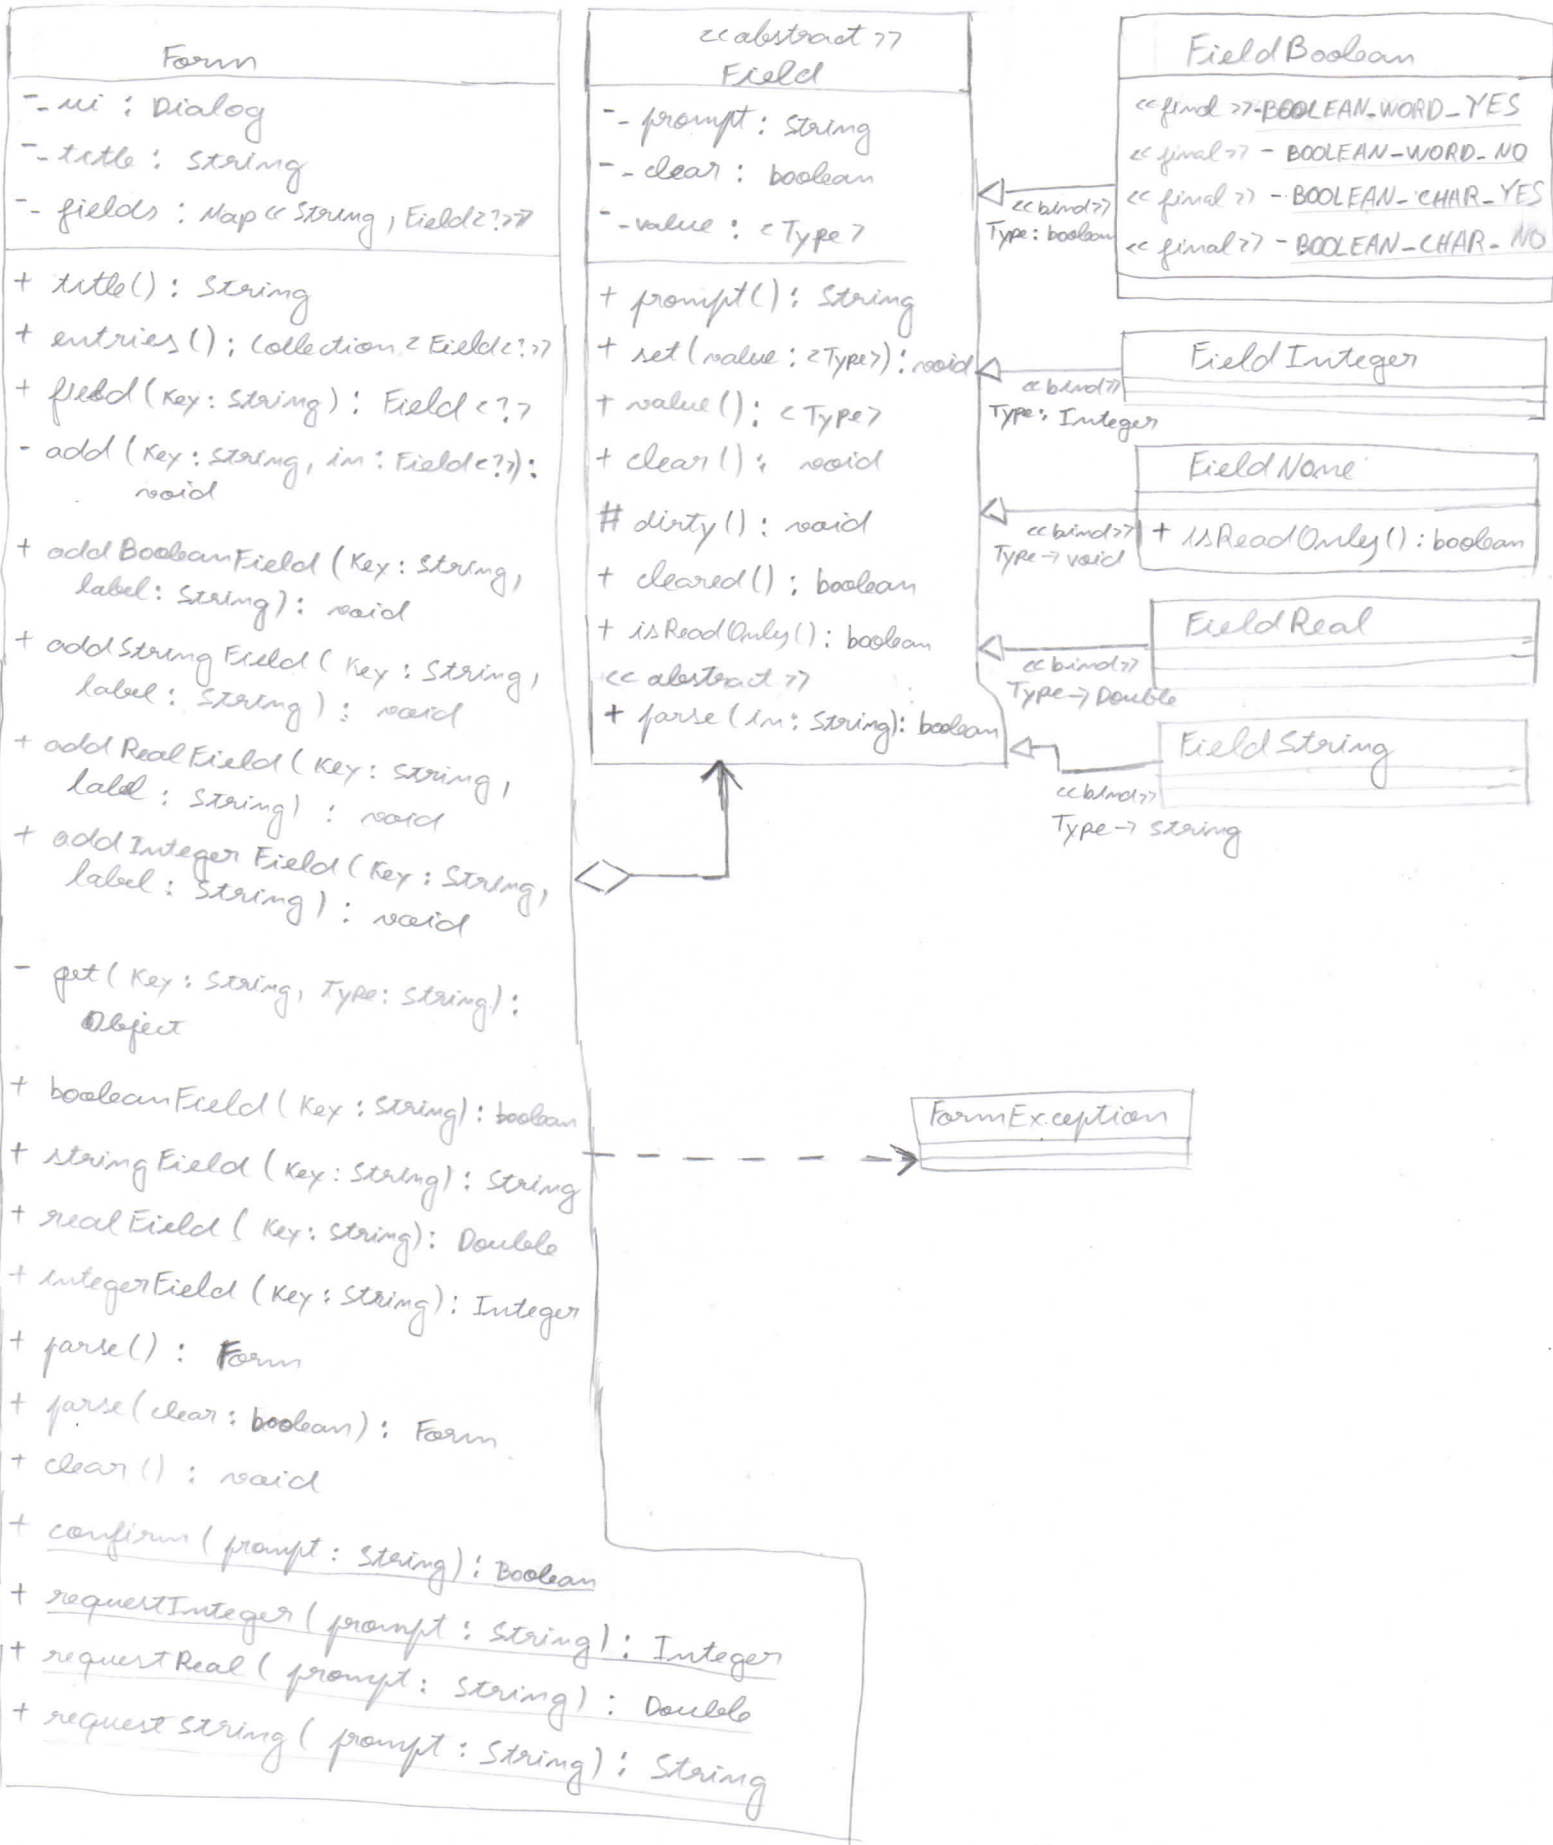 Form
- _ui : Dialog
- _title : String
- _fields : Map<<String, Field<?>>
+ title() : String
+ entries() ; Collection<Field<?>>
+ field(Key : String) : Field<?>
- add(Key : String, in : Field<?>) :
void
+ addBooleanField(Key : String,
label : String) : void
+ addStringField(Key : String,
label : String) : void
+ addRealField(Key : String,
label : String) : void
+ addIntegerField(Key : String,
label : String) : void
- get(Key : String, Type : String) :
Object
+ booleanField(Key : String) : boolean
+ stringField(Key : String) : String
+ realField(Key : String) : Double
+ integerField(Key : String) : Integer
+ parse() : Form
+ parse(clear : boolean) : Form
+ clear() : void
+ confirm(prompt : String) : Boolean
+ requestInteger(prompt : String) : Integer
+ requestReal(prompt : String) : Double
+ requestString(prompt : String) : String
<<abstract>>
Field
- _prompt : String
- _clear : boolean
- _value : <Type>
+ prompt() : String
+ set(value : <Type>) : void
+ value() : <Type>
+ clear() : void
# dirty() : void
+ cleared() : boolean
+ isReadOnly() : boolean
<<abstract>>
+ parse(in : String) : boolean
FieldBoolean
<<final>> - BOOLEAN_WORD_YES
<<final>> - BOOLEAN_WORD_NO
<<final>> - BOOLEAN_CHAR_YES
<<final>> - BOOLEAN_CHAR_NO
<<bind>>
Type : boolean
FieldInteger
<<bind>>
Type : Integer
FieldNone
+ isReadOnly() : boolean
<<bind>>
Type -> void
FieldReal
<<bind>>
Type -> Double
FieldString
<<bind>>
Type -> String
FormException